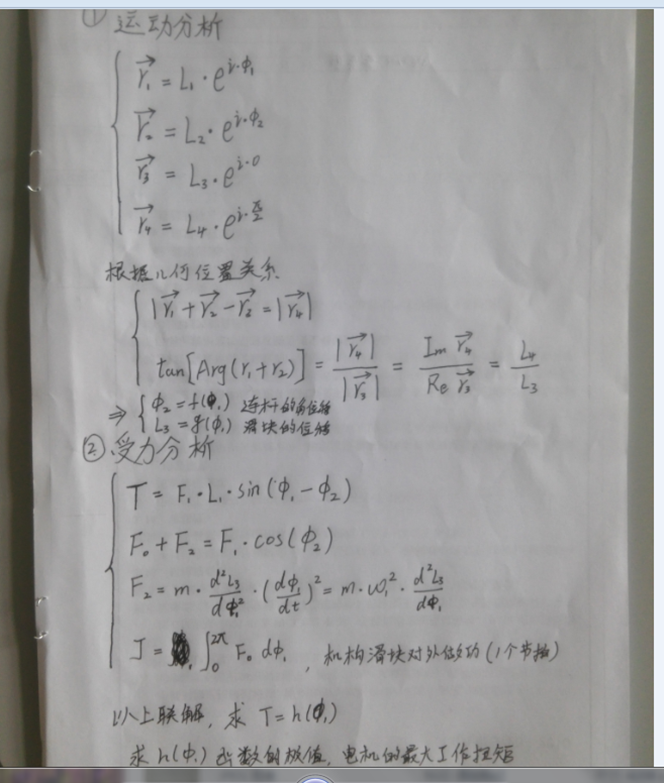 ① 运动分析
r⃗₁ = L₁·e^{i·ϕ₁}
r⃗₂ = L₂·e^{i·ϕ₂}
r⃗₃ = L₃·e^{i·0}
r⃗₄ = L₄·e^{i·π/2}
根据几何位置关系
|r⃗₁ + r⃗₂ − r⃗₃ = |r⃗₄|
tan[Arg(r₁+r₂)] = |r⃗₄| / |r⃗₃| = Im r⃗₄ / Re r⃗₃ = L₄ / L₃
⇒ { ϕ₂ = f(ϕ₁) 连杆的角位移
L₃ = g(ϕ₁) 滑块的位移
② 受力分析
T = F₁·L₁·sin(ϕ₁−ϕ₂)
F₀ + F₂ = F₁·cos(ϕ₂)
F₂ = m·d²L₃/dϕ₁²·(dϕ₁/dt)² = m·ω₁²·d²L₃/dϕ₁
J = ∫₀^{2π} F₀ dϕ₁ , 机构滑块对外做功(1个节拍)
以上联解, 求 T = h(ϕ₁)
求 h(ϕ₁) 函数的极值, 电机的最大工作扭矩